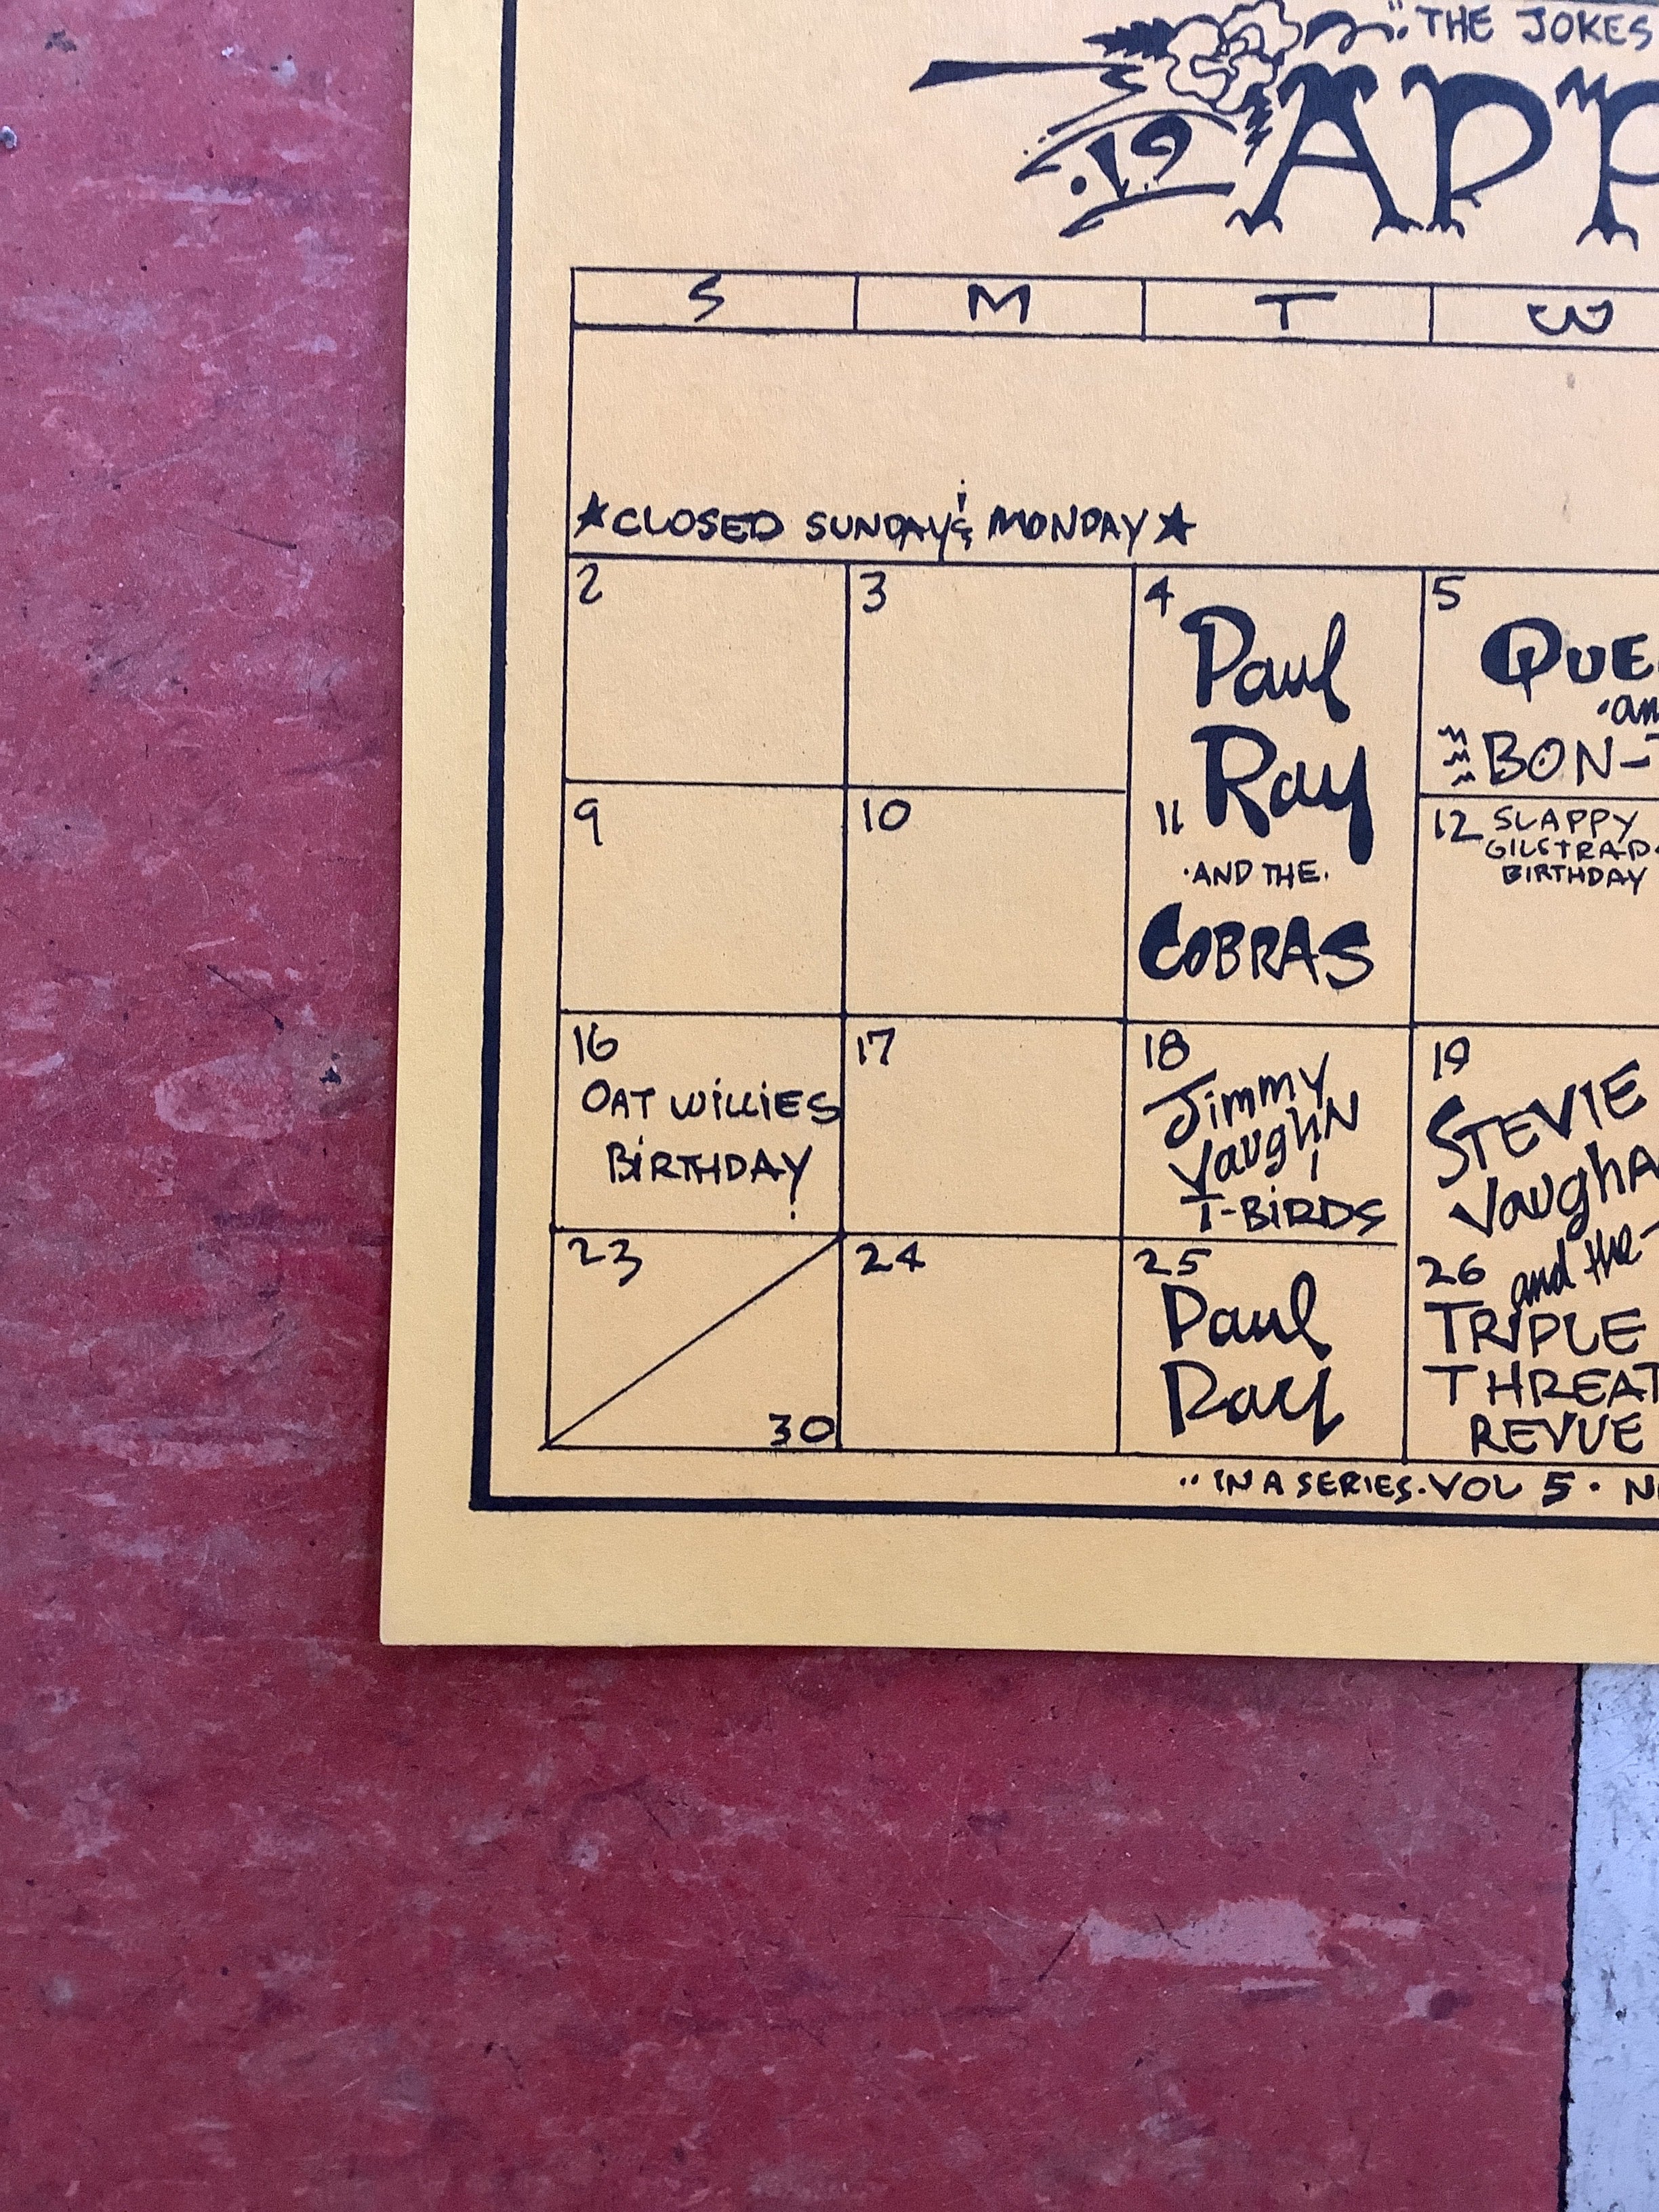 "THE JOKES
19
APR
S M T W
★CLOSED SUNDAY & MONDAY★
2 3 4 5
Paul
Ray
·AND THE·
COBRAS
BON-
9 10 11 12
SLAPPY
GILSTRAP
BIRTHDAY
16 17 18 19
OAT WILLIES
BIRTHDAY!
Jimmy
VaughN
T-BIRDS
STEVIE
Vaugha
and the
TRIPLE
THREAT
REVUE
23 24 25 26
30
Paul
Ray
"IN A SERIES·VOL 5·